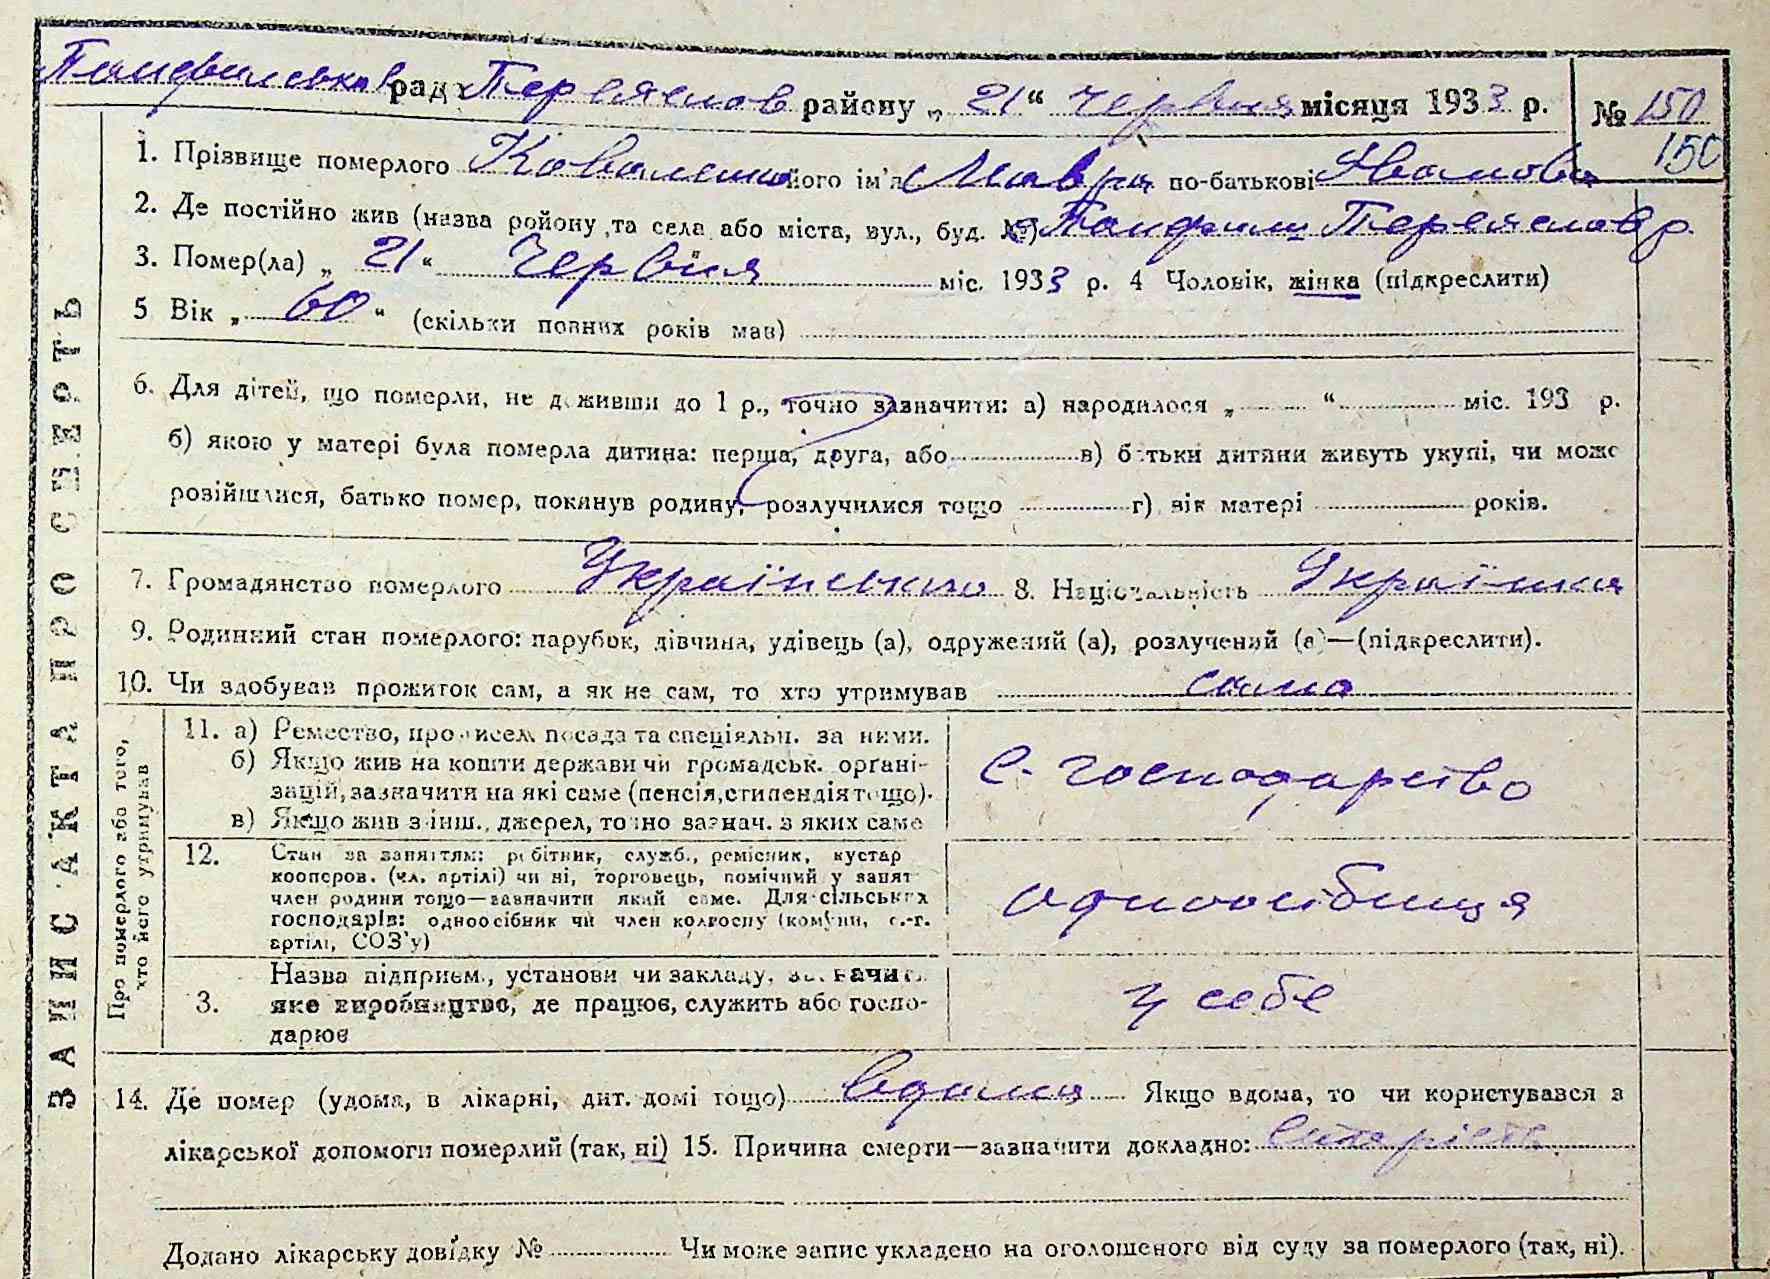 Панфильської ради Переяслов району „21“ червня місяця 1933 р. № 150
150
1. Прізвище померлого Коваленко його ім'я Мавра по-батькові Яванова
2. Де постійно жив (назва ройону та села або міста, вул., буд. №) Панфили Переяслов р.
3. Помер(ла) „21“ Червня міс. 1933 р. 4 Чоловік, жінка (підкреслити)
5 Вік „60“ (скільки повних років мав)
6. Для дітей, що померли, не доживши до 1 р., точно зазначити: а) народилося „ “ міс. 193 р.
б) якою у матері була померла дитина: перша, друга, або в) батьки дитини живуть укупі, чи може
розійшлися, батько помер, покинув родину, розлучилися тощо г) вік матері років.
7. Громадянство померлого Українське 8. Національність Українка
9. Родинний стан померлого: парубок, дівчина, удівець (а), одружений (а), розлучений (а)—(підкреслити).
10. Чи здобував прожиток сам, а як не сам, то хто утримував сама
ЗАПИС АКТА ПРО СМЕРТЬ
Про померлого або того, хто його утримував
11. а) Ремество, промисел, посада та спеціяльн. за ними.
б) Якщо жив на кошти держави чи громадськ. органі-
зацій, зазначити на які саме (пенсія, стипендія тощо).
в) Якщо жив з інш., джерел, точно зазнач. з яких саме
С. господарство
12. Стан за заняттям: робітник, служб., ремісник, кустар
кооперов. (чл. артілі) чи ні, торговець, помічний у занят
член родини тощо—зазначити який саме. Для сільських
господарів: одноосібник чи член колгоспу (комуни, с.-г.
артілі, СОЗ'у)
одноосібниця
3. Назва підприєм., установи чи закладу, зазначить
яке виробництво, де працює, служить або госпо-
дарює
у себе
14. Де помер (удома, в лікарні, дит. домі тощо) вдома Якщо вдома, то чи користувався з
лікарської допомоги померлий (так, ні) 15. Причина смерти—зазначити докладно: старість
Додано лікарську довідку № Чи може запис укладено на оголошеного від суду за померлого (так, ні).